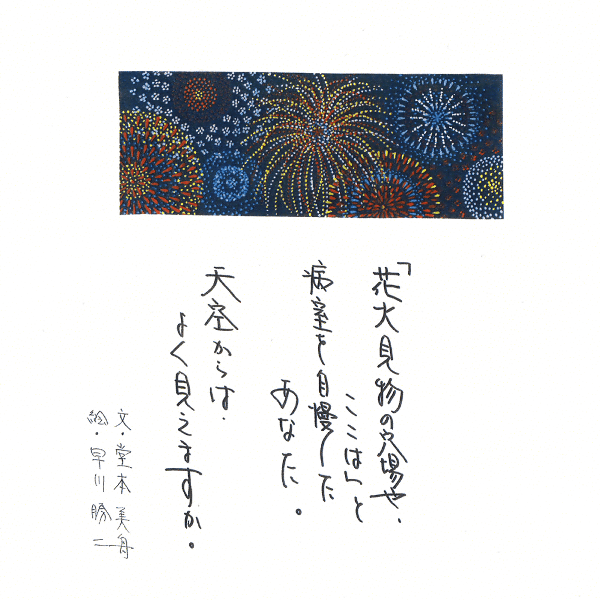 「花火見物の穴場や、
ここは」と
病室を自慢した
あなた。
天空からは
よく見えますか。
文・堂本美舟
絵・早川勝二